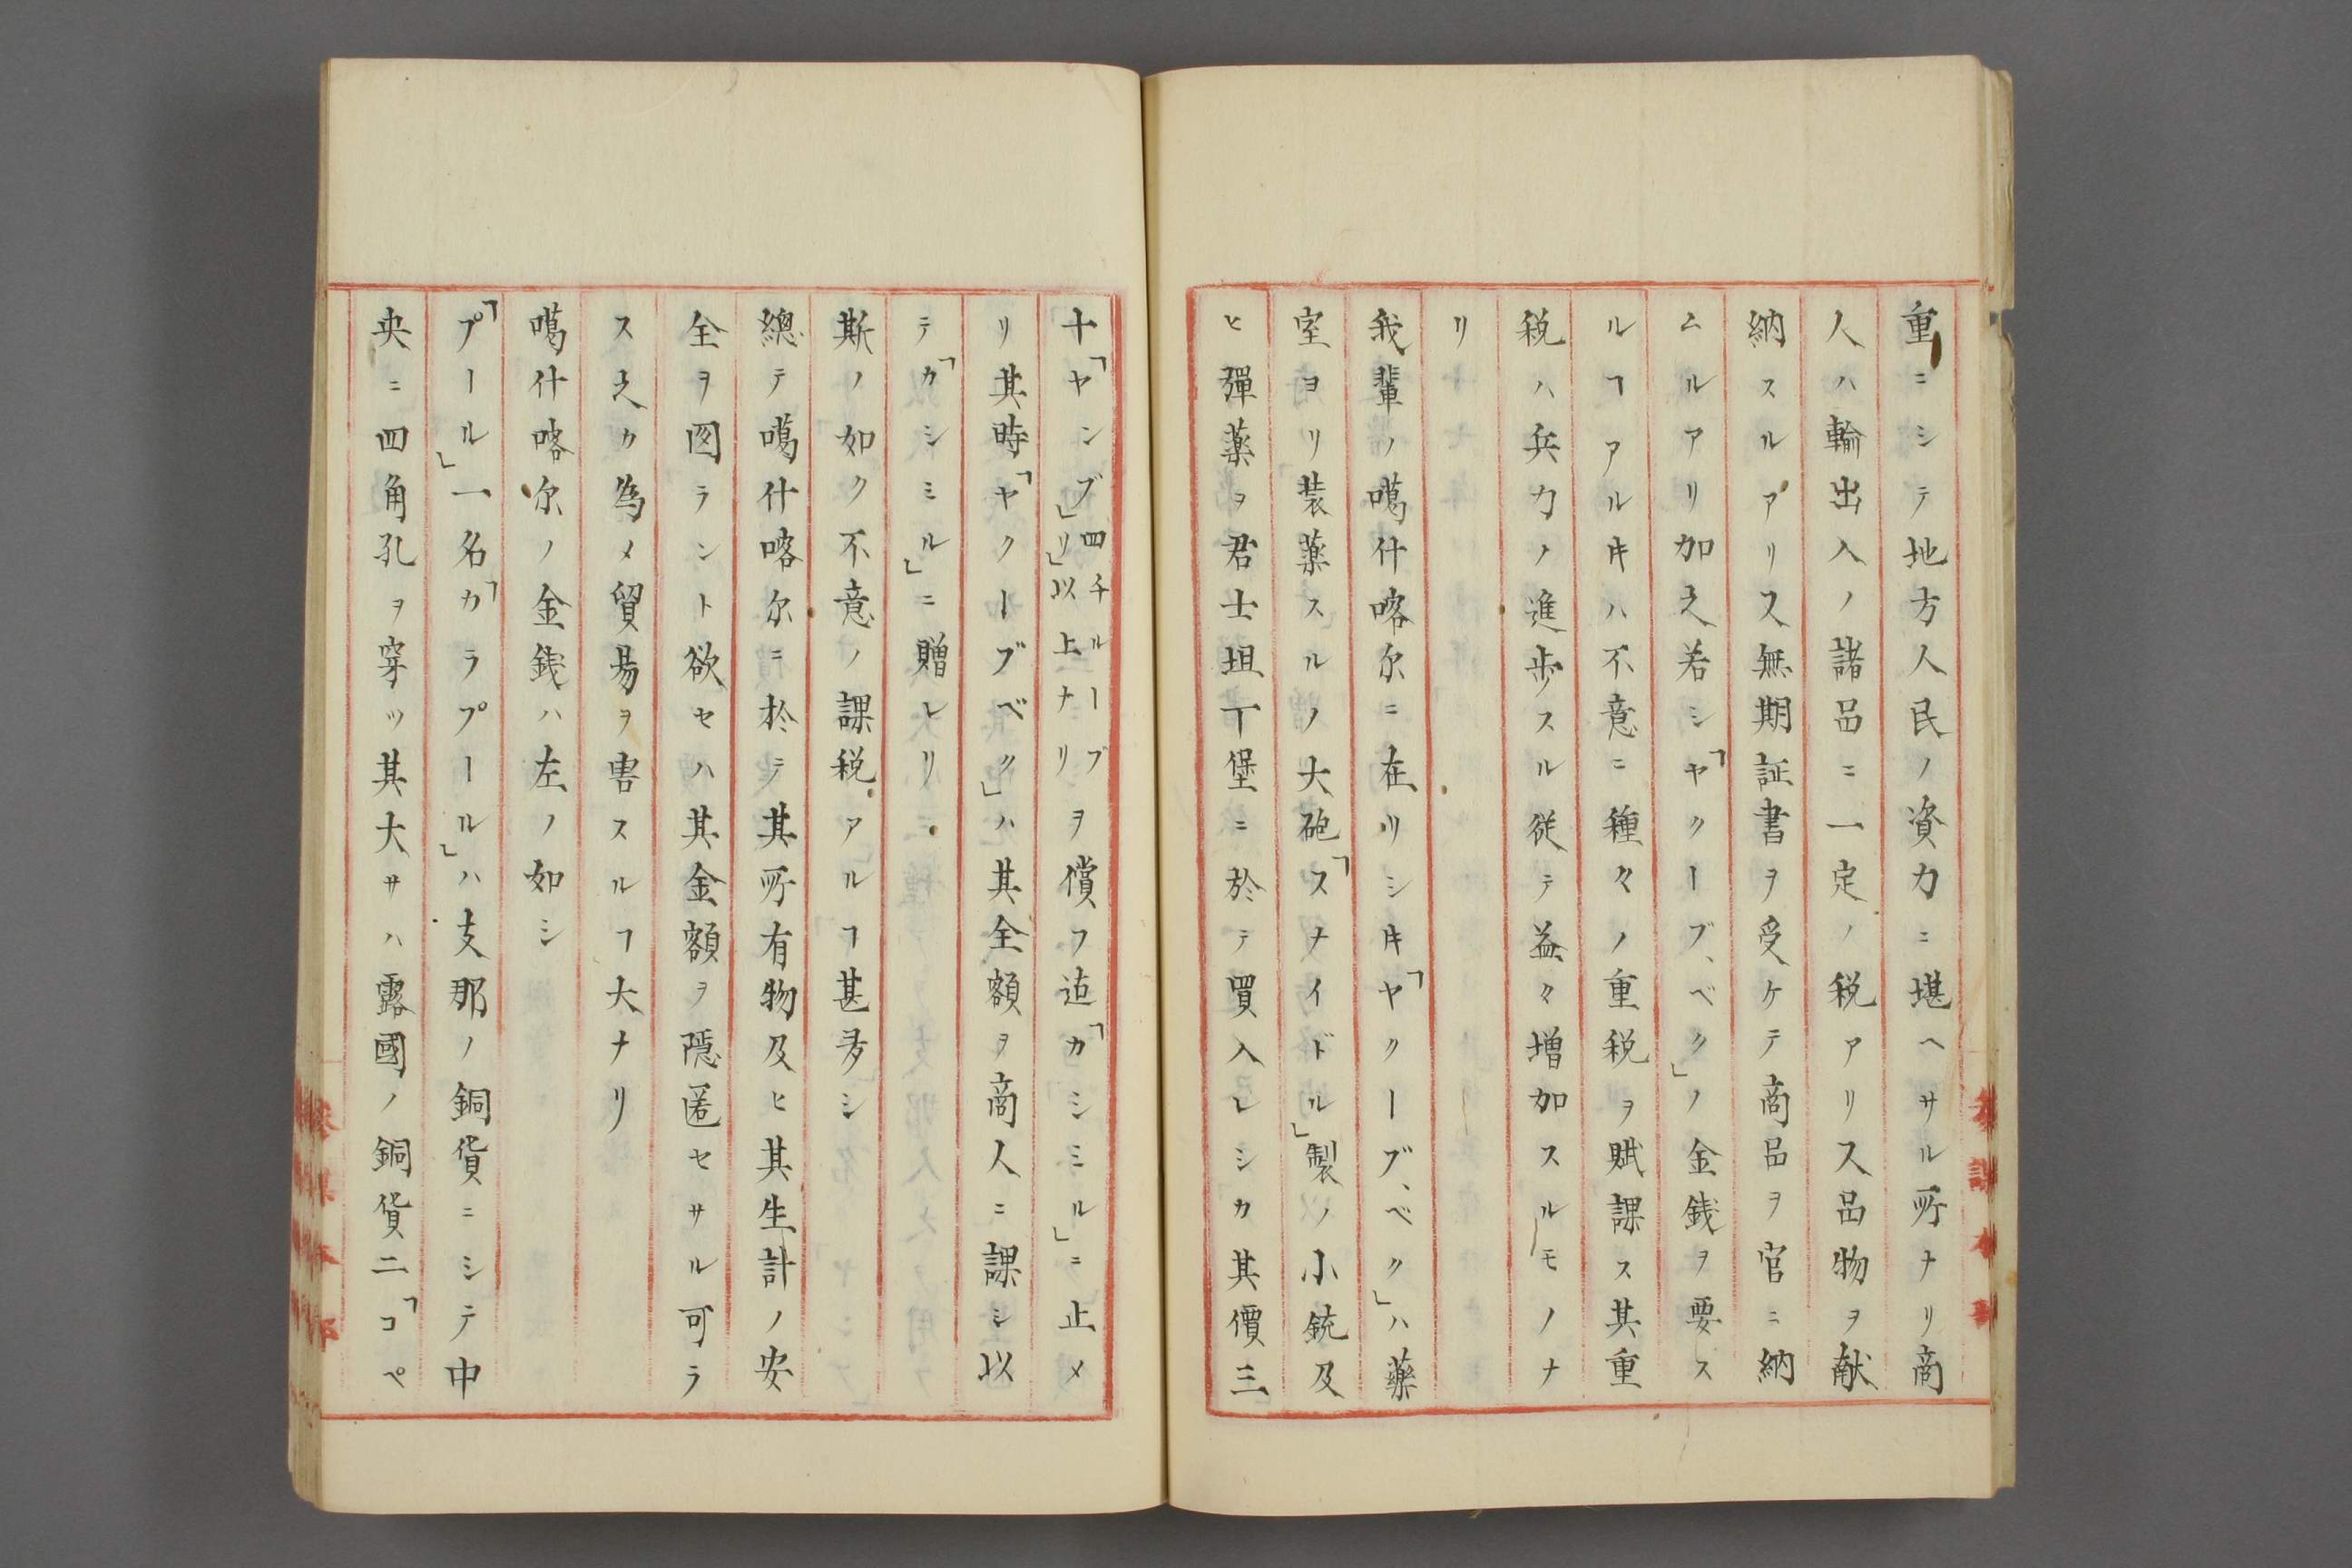 重ニシテ地方人民ノ資力ニ堪ヘサル所ナリ商
人ハ輸出入ノ諸品ニ一定ノ税アリ又品物ヲ献
納スルアリ又無期証書ヲ受ケテ商品ヲ官ニ納
ムルアリ加之若シ「ヤクーブ、ベク」ノ金銭ヲ要ス
ルヿアルキハ不意ニ種々ノ重税ヲ賦課ス其重
税ハ兵力ノ進歩スル従テ益々増加スルモノナ
リ
我輩ノ噶什喀尓ニ在リシキ「ヤクーブ、ベク」ハ藥
室ヨリ装薬スルノ大砲「スナイドル」製ノ小銃及
ヒ彈薬ヲ君士坦丁堡ニ於テ買入レシカ其價三
十「ヤンブ」四千ルーブ
リ」以上ナリヲ償フ迠「カシミル」ニ止メ
リ其時「ヤクーブベク」ハ其全額ヲ商人ニ課シ以
テ「カシミル」ニ贈レリ
斯ノ如ク不意ノ課税アルヿ甚多シ
總テ噶什喀尓ニ於テ其所有物及ヒ其生計ノ安
全ヲ図ラント欲セハ其金額ヲ隠匿セサル可ラ
ス之カ為メ貿易ヲ害スルヿ大ナリ
噶什喀尓ノ金銭ハ左ノ如シ
「プール」一名「カラプール」ハ支那ノ銅貨ニシテ中
央ニ四角孔ヲ穿ツ其大サハ露國ノ銅貨二「コペ